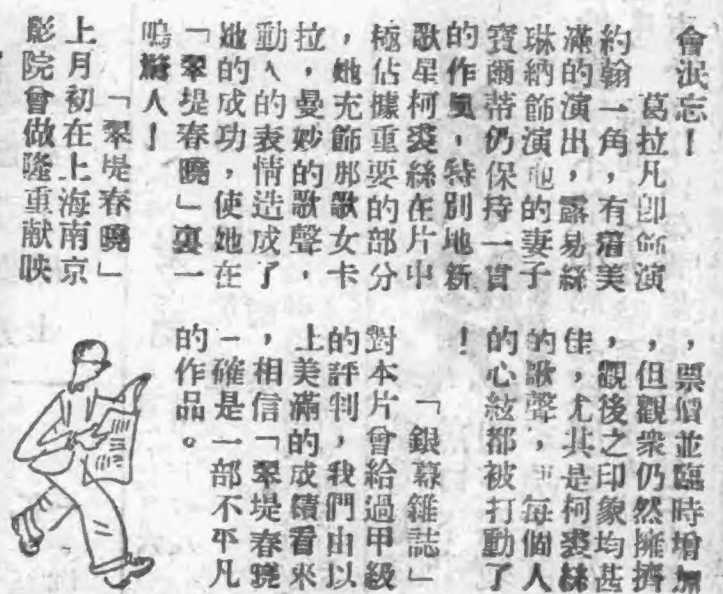 會泯忘！
葛拉凡即飾演
約翰一角，有着美
滿的演出，露易絲
琳納飾演他的妻子
寶爾蒂仍保持一貫
的作風，特別地新
歌星柯裘絲在片中
極佔據重要的部分
，她充飾那歌女卡
拉，曼妙的歌聲，
動人的表情造成了
她的成功，使她在
「翠堤春曉」裏一
鳴驚人！
「翠堤春曉」
上月初在上海南京
影院曾做隆重献映
，票價並臨時增加
，但觀衆仍然擁擠
，觀後之印象均甚
佳，尤其是柯裘絲
的歌聲，每個人
的心絃都被打動了
！
「銀幕雜誌」
對本片曾給過甲級
的評判，我們由以
上美滿的成績看來
，相信「翠堤春曉
」確是一部不平凡
的作品。